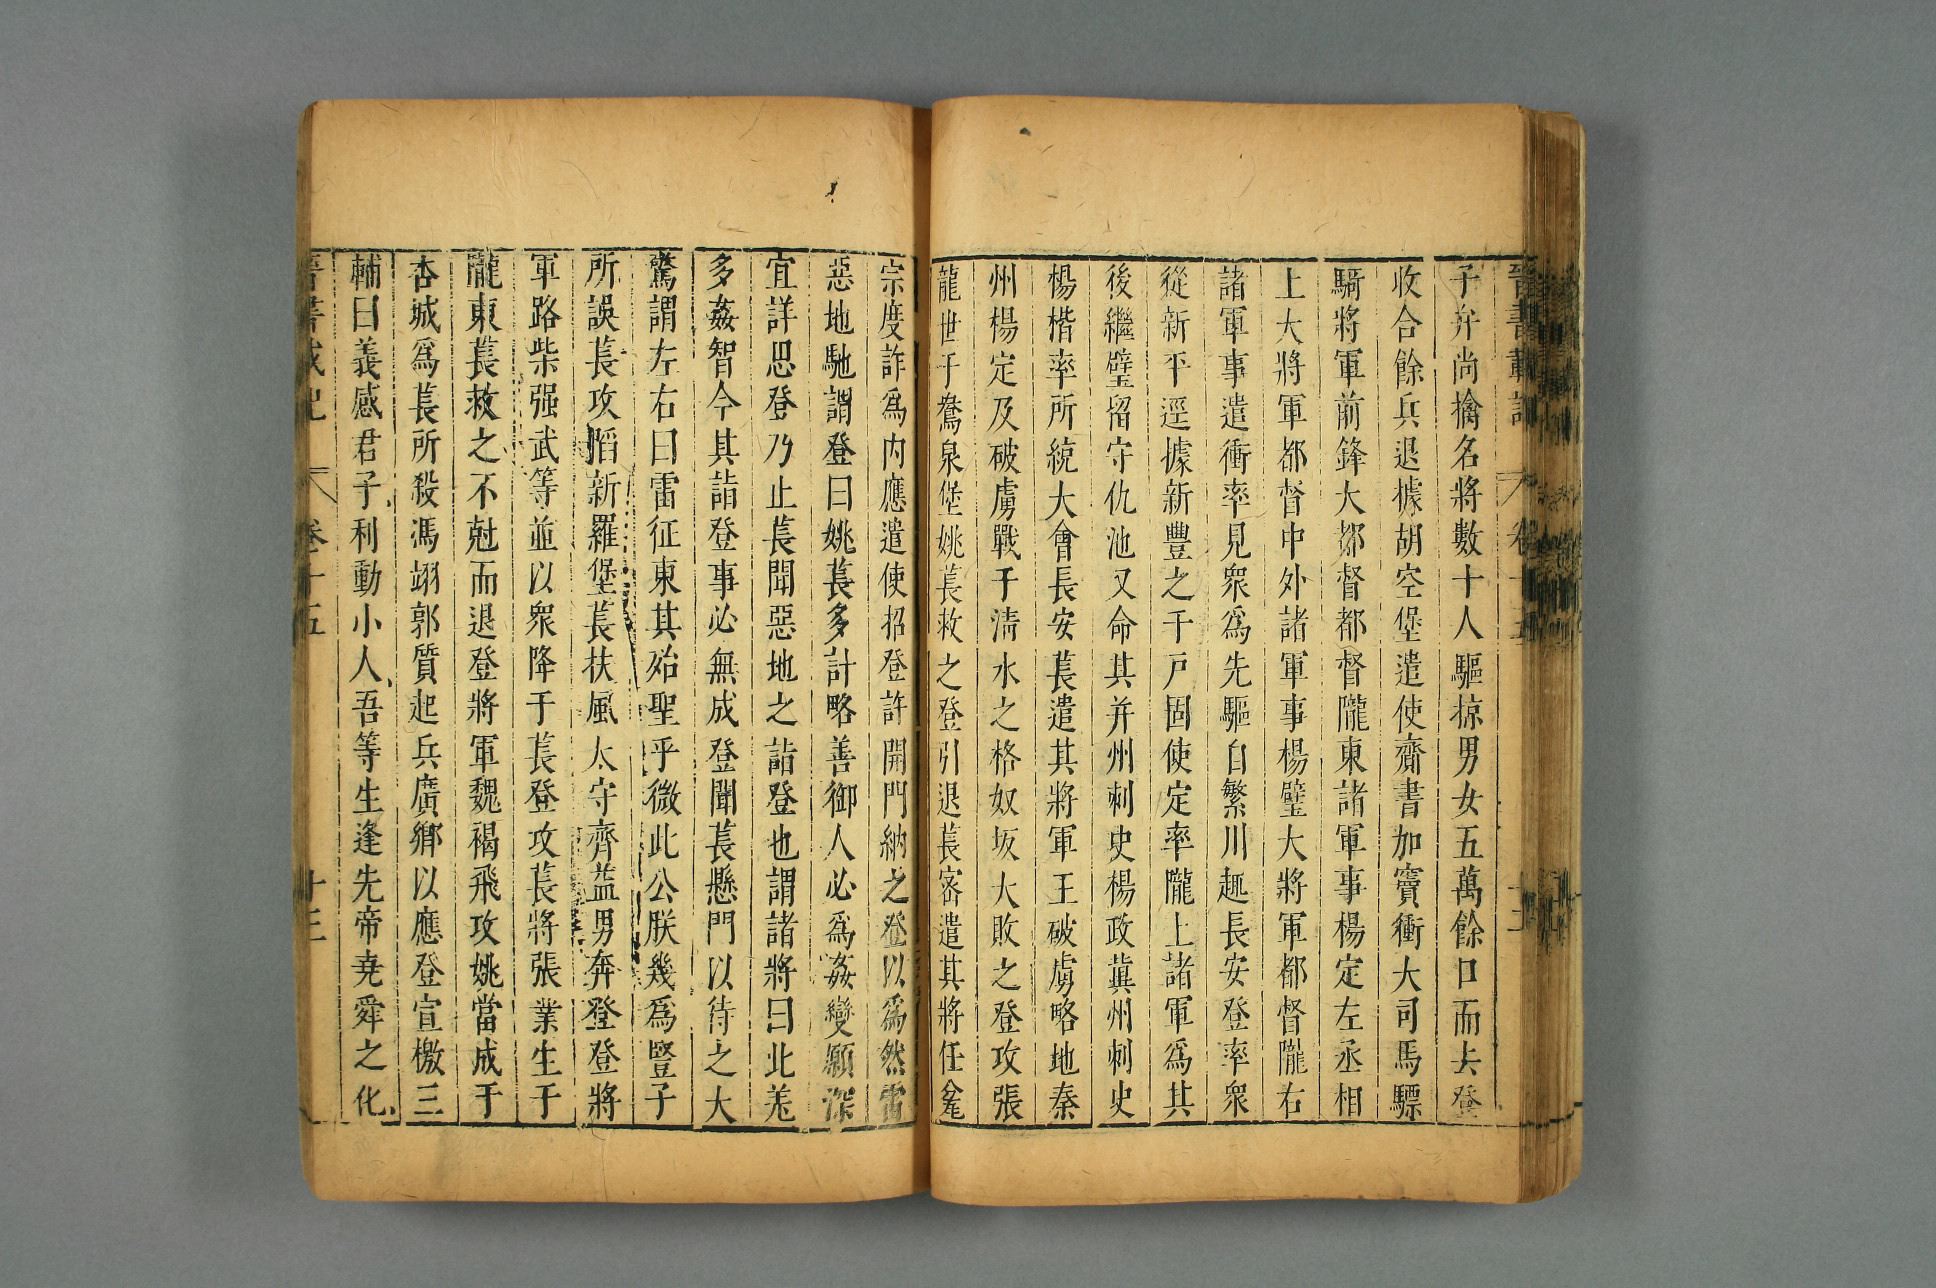 晉書載記 卷十五
子并尚擒名將數十人驅掠男女五萬餘口而去登
收合餘兵退據胡空堡遣使齎書加竇衝大司馬驃
騎將軍前鋒大都督都督隴東諸軍事楊定左丞相
上大將軍都督中外諸軍事楊璧大將軍都督隴右
諸軍事遣衝率見衆爲先驅自繁川趣長安登率衆
從新平逕據新豐之千戸固使定率隴上諸軍爲其
後繼璧留守仇池又命其并州刺史楊政冀州刺史
楊楷率所統大會長安萇遣其將軍王破虜略地秦
州楊定及破虜戰于清水之格奴坂大敗之登攻張
龍世于鴦泉堡姚萇救之登引退萇密遣其將任瓫
宗度詐爲内應遣使招登許開門納之登以爲然雷
惡地馳謂登曰姚萇多計略善御人必爲姦變願深
宜詳思登乃止萇聞惡地之詣登也謂諸將曰此羌
多姦智今其詣登事必無成登聞萇懸門以待之大
驚謂左右曰雷征東其殆聖乎微此公朕幾爲豎子
所誤萇攻䧟新羅堡萇扶風太守齊益男奔登登將
軍路柴强武等並以衆降于萇登攻萇將張業生于
隴東萇救之不尅而退登將軍魏褐飛攻姚當成于
杏城爲萇所殺馮翊郭質起兵廣鄕以應登宣檄三
輔曰義感君子利動小人吾等生逢先帝堯舜之化
晉書載記 卷十五 十三